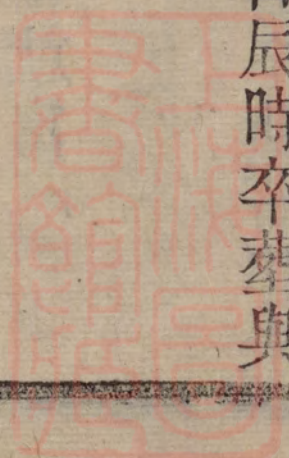 辰時卒葬與
上海圖
書館藏